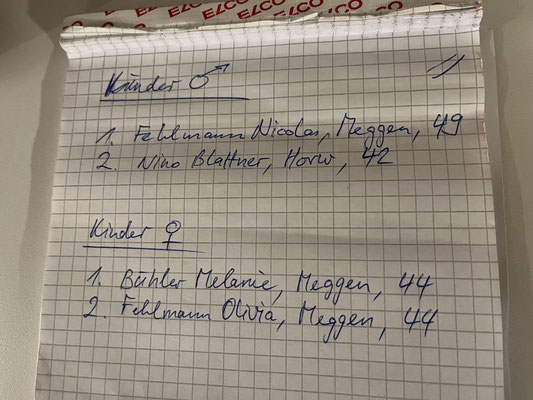 ELCO ELCO ELCO
Kinder ♂
1. Fehlmann Nicolas, Meggen, 49
2. Nino Blattner, Horw, 42
Kinder ♀
1. Bühler Melanie, Meggen, 44
2. Fehlmann Olivia, Meggen, 44